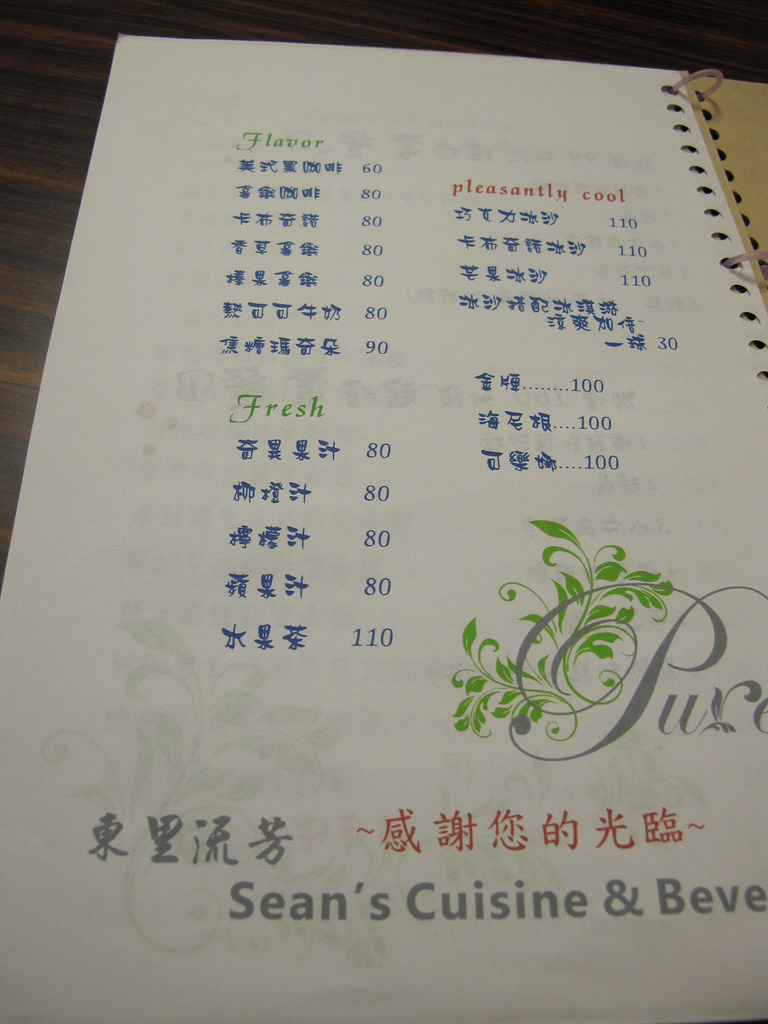 Flavor
美式黑咖啡 60
拿鐵咖啡 80
卡布奇諾 80
香草拿鐵 80
榛果拿鐵 80
熱可可牛奶 80
焦糖瑪奇朵 90
Fresh
奇異果汁 80
柳橙汁 80
檸檬汁 80
蘋果汁 80
水果茶 110
pleasantly cool
巧克力冰沙 110
卡布奇諾冰沙 110
芒果冰沙 110
冰沙搭配冰淇淋
涼爽加倍~
一球 30
金牌........100
海尼根....100
可樂娜....100
Pure
東里流芳
~感謝您的光臨~
Sean's Cuisine & Beve